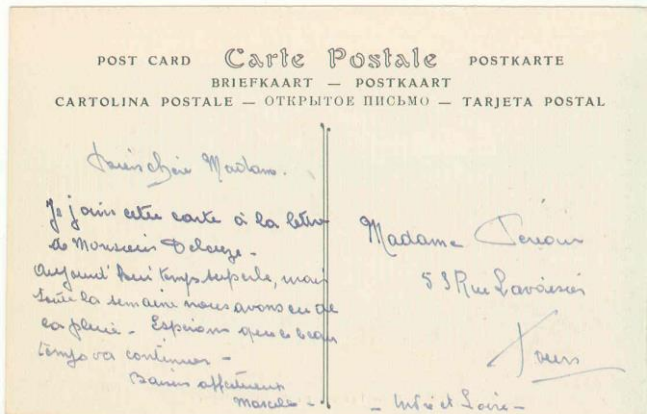 POST CARD Carte Postale POSTKARTE
BRIEFKAART — POSTKAART
CARTOLINA POSTALE — ОТКРЫТОЕ ПИСЬМО — TARJETA POSTAL
chère Madame.
Je joins cette carte à la lettre
de Monsieur
aujourd'hui temps superbe, mais
toute la semaine nous avons eu de
la pluie - Espérons que ce beau
temps va continuer -
Baisers affectueux
Madame
53 Rue Lavoisier
Tours
- Indre et Loire -